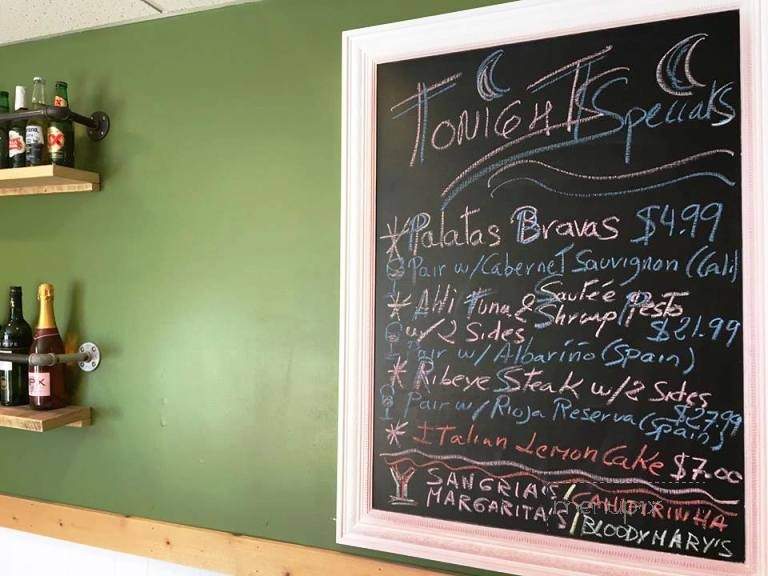 TONIGHTS Specials
Palatas Bravas $4.99
Pair w/Cabernet Sauvignon (Cali)
Ahi Tuna & Sautée Shrimp/Pesto
w/ 2 Sides $21.99
Pair w/ Albariño (Spain)
Ribeye Steak w/2 Sides
Pair w/Rioja Reserva (Spain) $27.99
Italian Lemon Cake $7.00
SANGRIA'S / CAIPIRINHA
MARGARITA'S / BLOODY MARY'S
menupix
Corona
XX